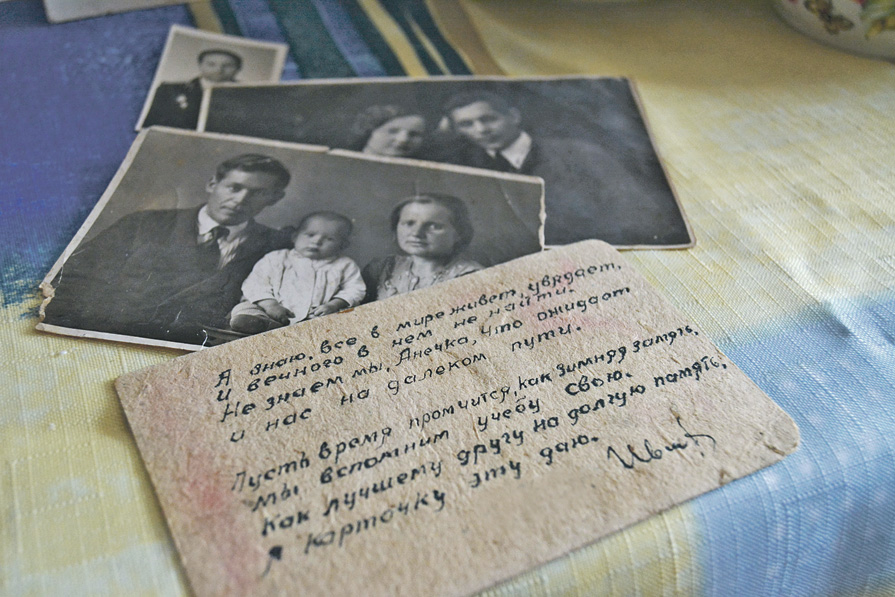 Я знаю, все в мире живет, увядает,
и вечного в нем не найти.
Не знаем мы, Анечка, что ожидает
и нас на далеком пути.
Пусть время промчится, как зимняя заметь,
мы вспомним учебу свою.
Как лучшему другу на долгую память,
я карточку эту даю.